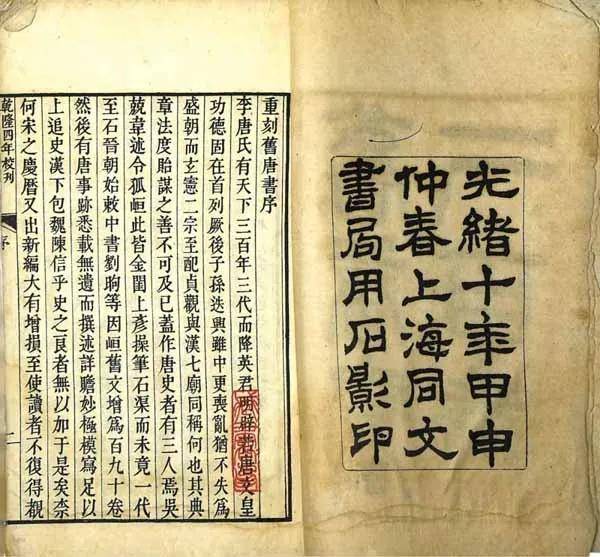 光緒十年甲申
仲春上海同文
書局用石影印
重刻舊唐書序
李唐氏有天下三百年三代而降英君明辟若唐文皇
功德固在首列厥後子孫迭興雖中更喪亂猶不失爲
盛朝而玄憲二宗至配貞觀與漢七廟同稱何也其典
章法度貽謀之善不可及已蓋作唐史者有三人焉吳
兢韋述令狐峘此皆金閨上彥操筆石渠而未竟一代
至石晉朝始敕中書劉昫等因峘舊文增爲百九十卷
然後有唐事跡悉載無遺而撰述詳贍妙極模寫足以
上追史漢下包魏陳信乎史之良者無以加于是矣柰
何宋之慶曆又出新編大有增損至使讀者不復得覩
乾隆四年校刊
序